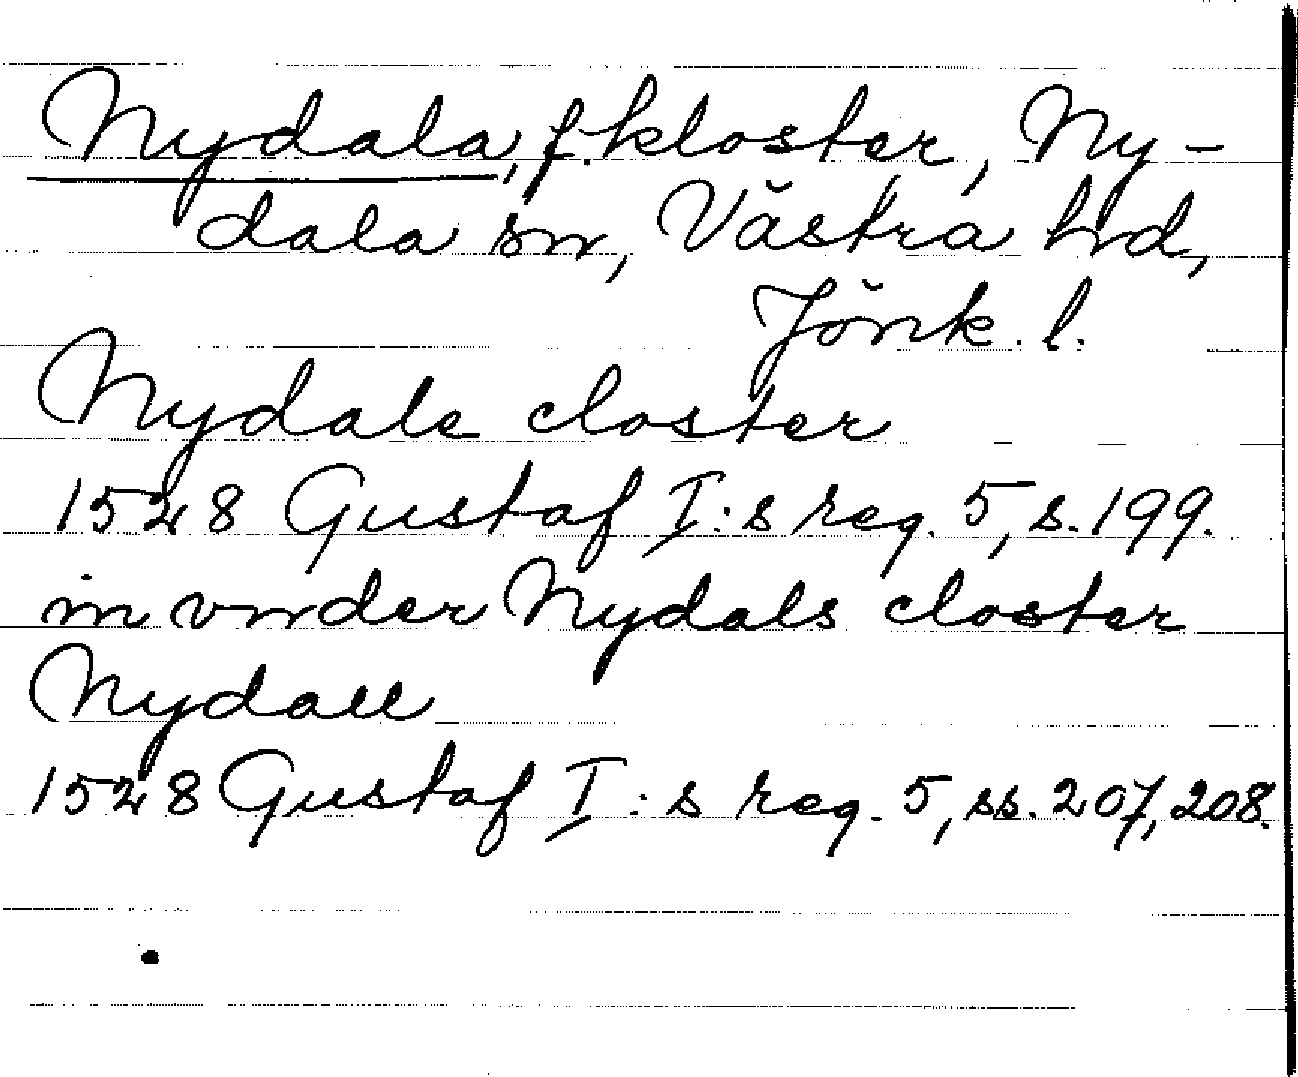 Nydala, f. kloster, Ny-
dala sn, Västra hd,
Jönk. l.
Nydale closter
1528 Gustaf I:s reg. 5, s. 199.
in vnder Nydals closter
Nydall
1528 Gustaf I:s reg. 5, ss. 207, 208.